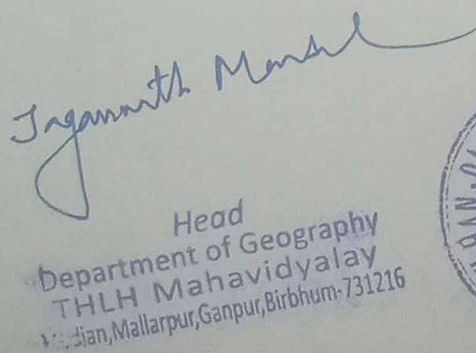 Jagannath Mondal
Head
Department of Geography
THLH Mahavidyalay
Mallarpur,Ganpur,Birbhum-731216